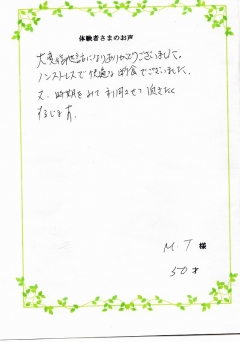 体験者さまのお声
大変お世話になりありがとうございました。
ノンストレスで快適な断食でございました。
又、時期をみて利用させて頂きたく
存じます。
M.T 様
50才